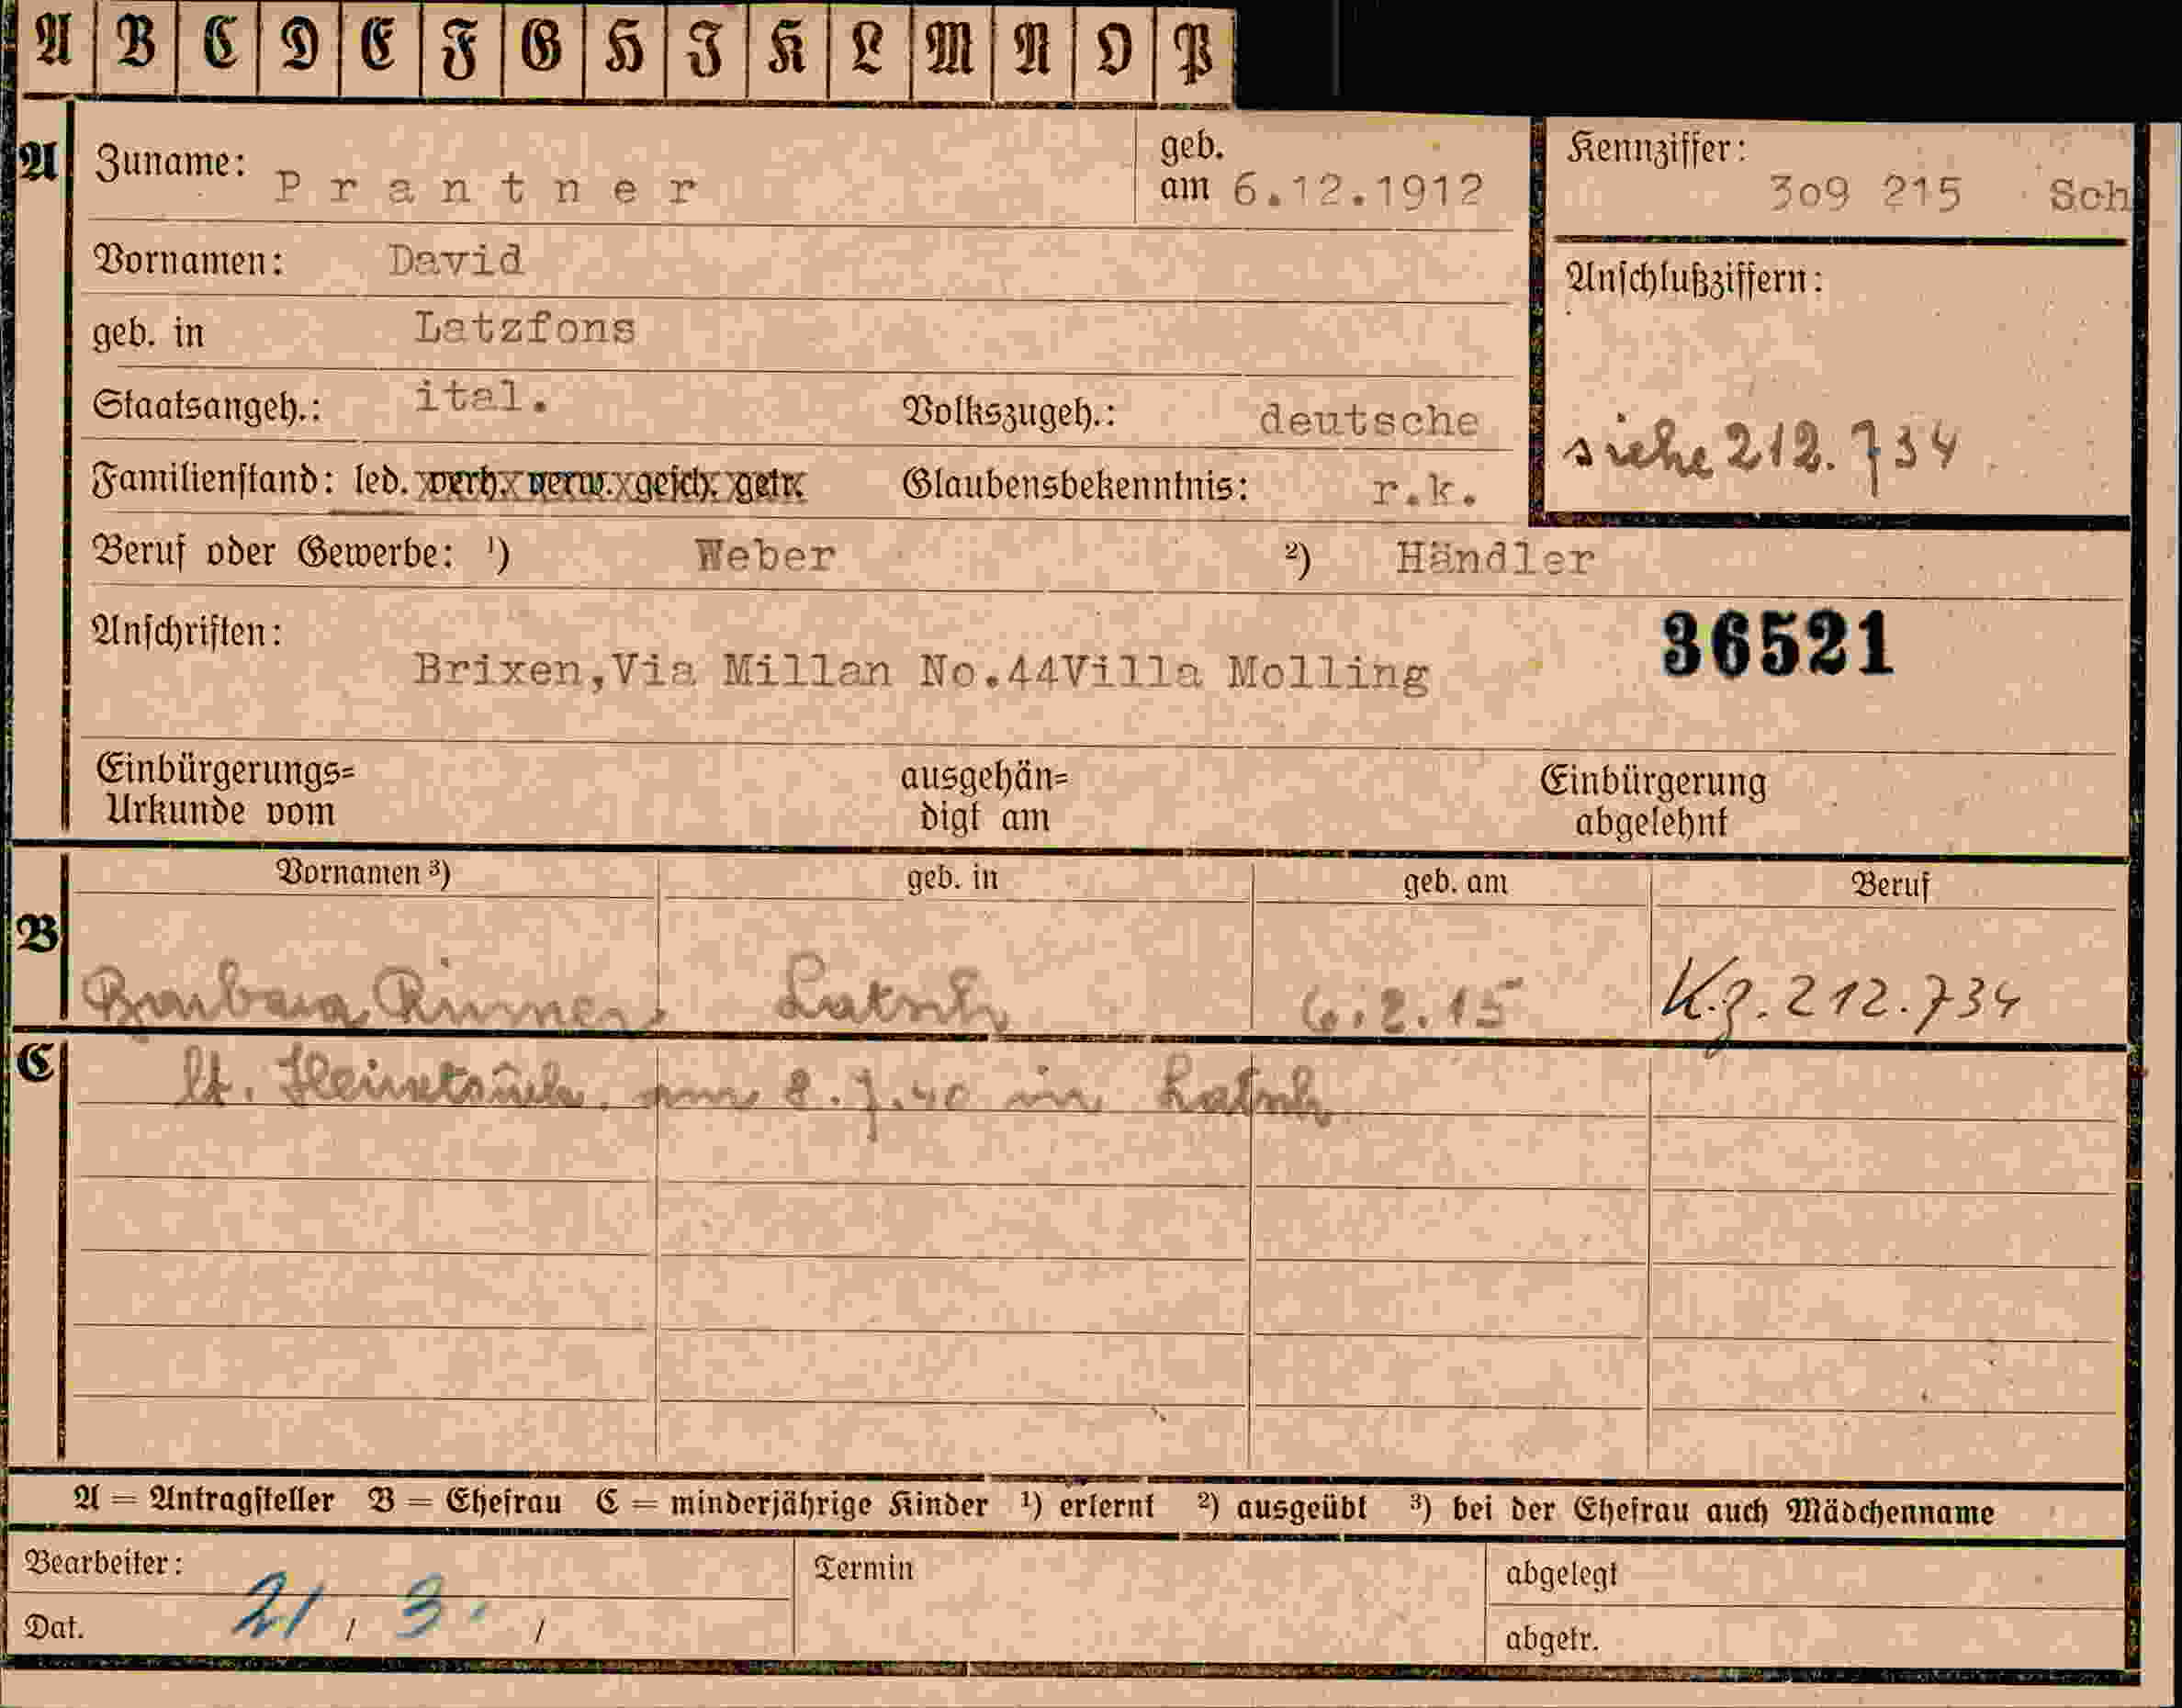 A B C D E F G H I K L M N O P
A Zuname: Prantner geb. am 6.12.1912
Kennziffer: 309 215 Sch
Vornamen: David
Anschlußziffern:
geb. in Latzfons
Staatsangeh.: ital. Volkszugeh.: deutsche
siehe 212.734
Familienstand: led. verh. verw. gesch. getr. Glaubensbekenntnis: r.k.
Beruf oder Gewerbe: ¹) Weber ²) Händler
Anschriften:
36521
Brixen,Via Millan No.44Villa Molling
Einbürgerungs= ausgehän= Einbürgerung
Urkunde vom digt am abgelehnt
Vornamen ³) geb. in geb. am Beruf
B Barbara Rinner Latsch 6.2.15 K.z. 212.734
C lt. am 8.7.40 in Latsch
A = Antragsteller B = Ehefrau C = minderjährige Kinder ¹) erlernt ²) ausgeübt ³) bei der Ehefrau auch Mädchenname
Bearbeiter: Termin abgelegt
Dat. 21 / 3. / abgetr.